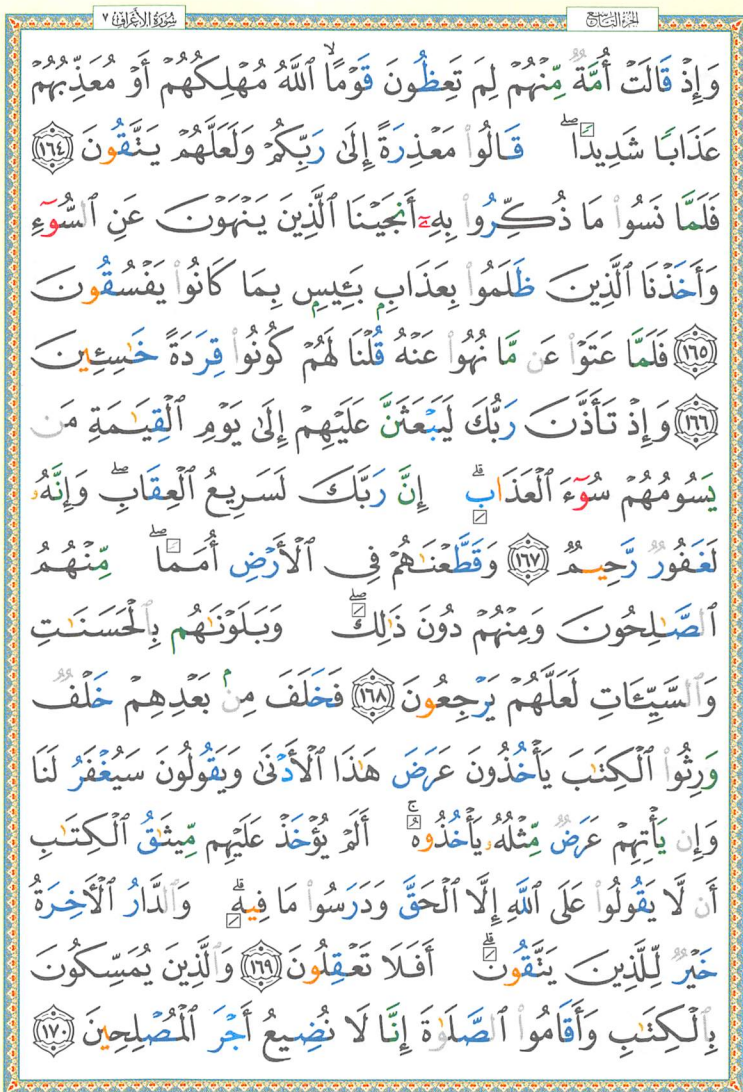 سُورَةُ الأَعْرَافِ ٧
الجُزءُ التَّاسِعُ
وَإِذۡ قَالَتۡ أُمَّةٞ مِّنۡهُمۡ لِمَ تَعِظُونَ قَوۡمًا ۙ ٱللَّهُ مُهۡلِكُهُمۡ أَوۡ مُعَذِّبُهُمۡ
عَذَابٗا شَدِيدٗاۖ قَالُواْ مَعۡذِرَةً إِلَىٰ رَبِّكُمۡ وَلَعَلَّهُمۡ يَتَّقُونَ ١٦٤
فَلَمَّا نَسُواْ مَا ذُكِّرُواْ بِهِۦٓ أَنجَيۡنَا ٱلَّذِينَ يَنۡهَوۡنَ عَنِ ٱلسُّوٓءِ
وَأَخَذۡنَا ٱلَّذِينَ ظَلَمُواْ بِعَذَابِۭ بَـِٔيسِۭ بِمَا كَانُواْ يَفۡسُقُونَ
١٦٥ فَلَمَّا عَتَوۡاْ عَن مَّا نُهُواْ عَنۡهُ قُلۡنَا لَهُمۡ كُونُواْ قِرَدَةً خَٰسِـِٔينَ
١٦٦ وَإِذۡ تَأَذَّنَ رَبُّكَ لَيَبۡعَثَنَّ عَلَيۡهِمۡ إِلَىٰ يَوۡمِ ٱلۡقِيَٰمَةِ مَن
يَسُومُهُمۡ سُوٓءَ ٱلۡعَذَابِۗ إِنَّ رَبَّكَ لَسَرِيعُ ٱلۡعِقَابِۖ وَإِنَّهُۥ
لَغَفُورٞ رَّحِيمٞ ١٦٧ وَقَطَّعۡنَٰهُمۡ فِي ٱلۡأَرۡضِ أُمَمٗاۖ مِّنۡهُمُ
ٱلصَّٰلِحُونَ وَمِنۡهُمۡ دُونَ ذَٰلِكَۖ وَبَلَوۡنَٰهُم بِٱلۡحَسَنَٰتِ
وَٱلسَّيِّـَٔاتِ لَعَلَّهُمۡ يَرۡجِعُونَ ١٦٨ فَخَلَفَ مِنۢ بَعۡدِهِمۡ خَلۡفٞ
وَرِثُواْ ٱلۡكِتَٰبَ يَأۡخُذُونَ عَرَضَ هَٰذَا ٱلۡأَدۡنَىٰ وَيَقُولُونَ سَيُغۡفَرُ لَنَا
وَإِن يَأۡتِهِمۡ عَرَضٞ مِّثۡلُهُۥ يَأۡخُذُوهُۚ أَلَمۡ يُؤۡخَذۡ عَلَيۡهِم مِّيثَٰقُ ٱلۡكِتَٰبِ
أَن لَّا يَقُولُواْ عَلَى ٱللَّهِ إِلَّا ٱلۡحَقَّ وَدَرَسُواْ مَا فِيهِۗ وَٱلدَّارُ ٱلۡأٓخِرَةُ
خَيۡرٞ لِّلَّذِينَ يَتَّقُونَۗ أَفَلَا تَعۡقِلُونَ ١٦٩ وَٱلَّذِينَ يُمَسِّكُونَ
بِٱلۡكِتَٰبِ وَأَقَامُواْ ٱلصَّلَوٰةَ إِنَّا لَا نُضِيعُ أَجۡرَ ٱلۡمُصۡلِحِينَ ١٧٠